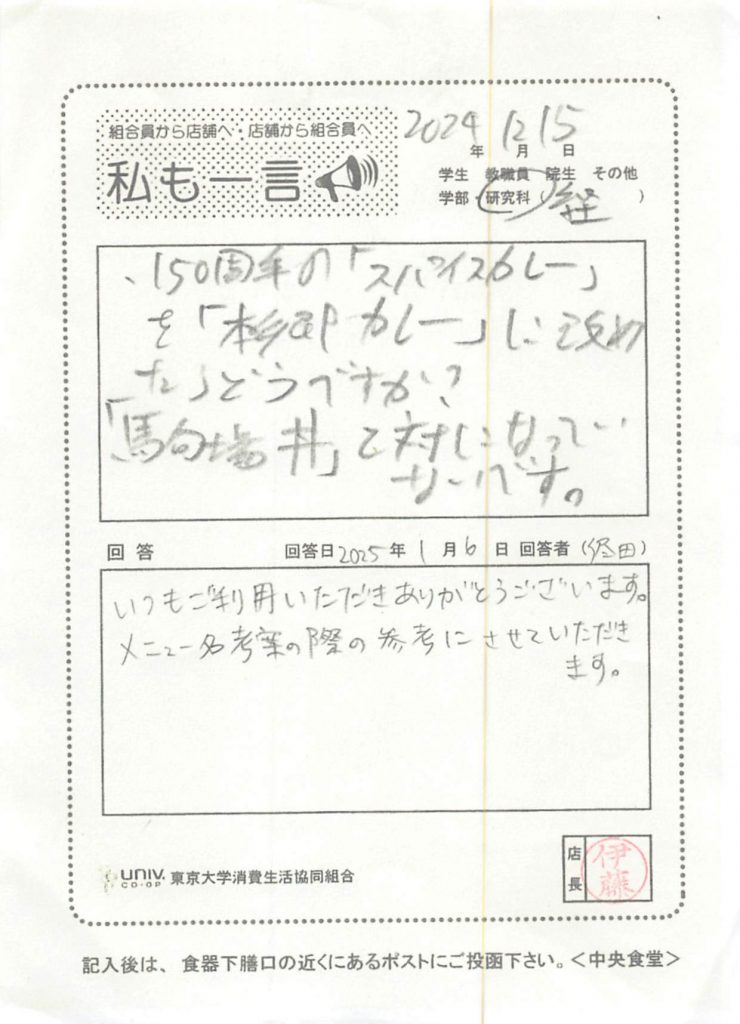 組合員から店舗へ・店舗から組合員へ
私も一言
2024 12 15
年 月 日
学生 教職員 院生 その他
学部・研究科( 経 )
、150周年の「スパイスカレー」
を「本郷カレー」に改め
たらどうですか?
「馬場丼」と対になってい
ないです。
回答 回答日 2025年 1月 6日 回答者( 田)
いつもご利用いただきありがとうございます。
メニュー名考案の際の参考にさせていただき
ます。
UNIV.
CO-OP
東京大学消費生活協同組合
店長
伊藤
記入後は、食器下膳口の近くにあるポストにご投函下さい。<中央食堂>